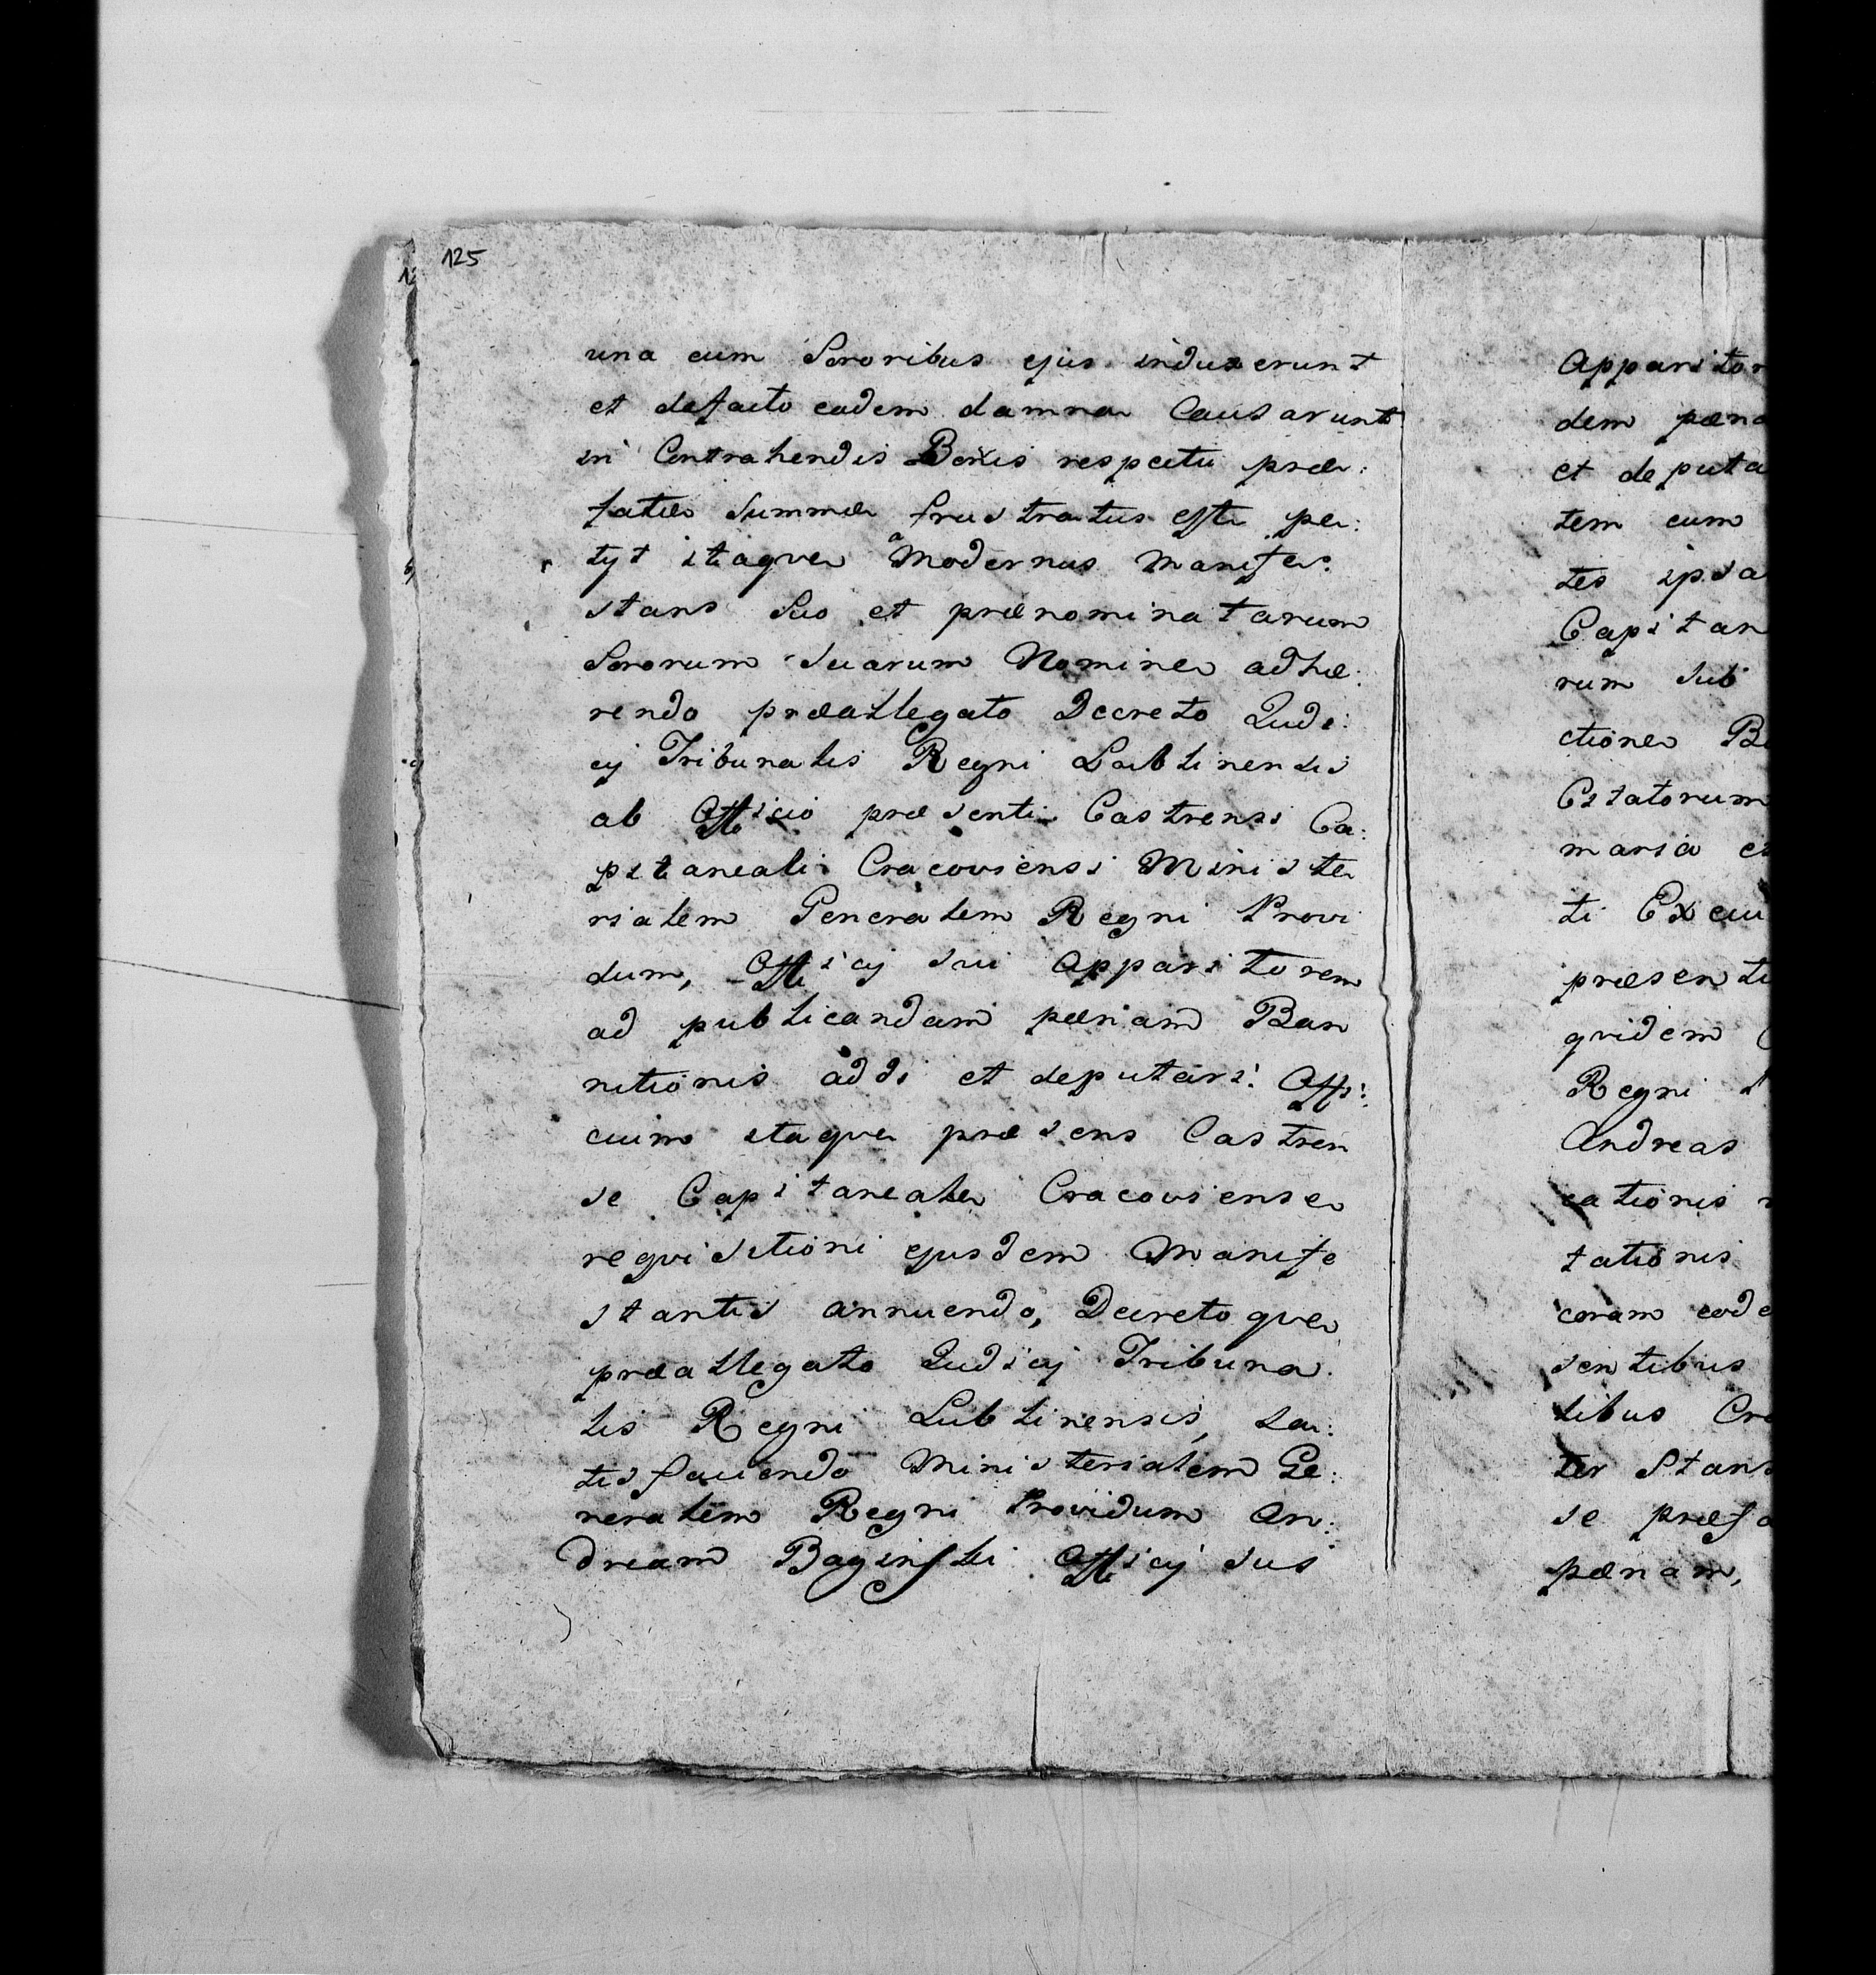 125
una cum Sororibus ejus induxerunt
et defacto eadem damna Causarunt
in Contrahendis Bonis respectu præ:
fatæ Summæ frustratus est, pe:
tyt itaque Modernus Manife:
stans Suo et prænominatarum
Sororum Suarum Nomine adhæ:
rendo præallegato Decreto Judi:
cij Tribunalis Regni Lublinensis
ab Officio præsenti Castrensi Ca:
pitaneali Cracoviensi Ministe
rialem Generalem Regni Provi
dum, Officij sui Apparitorem
ad publicandam pænam Ban
nitionis addi et deputari: Offi:
cium itaque præsens Castren
se Capitaneale Cracoviense
requisitioni ejusdem Manife
stantis annuendo, Decretoque
præallegato Judicij Tribuna
lis Regni Lublinensis, Sa:
tisfaciendo Ministerialem Ge:
neralem Regni Providum An:
dream Baginski Officij sui
Apparitor
dem pæna
et deputa
tem cum
tes ipsa
Capitan
rum sub
ctione B
Citatorum
maria
ti
præsenti
quidem
Regni
Andreas
cationis
tationis
coram eode
sentibus
libus Cra
ter Stans
se præfa
pænam,